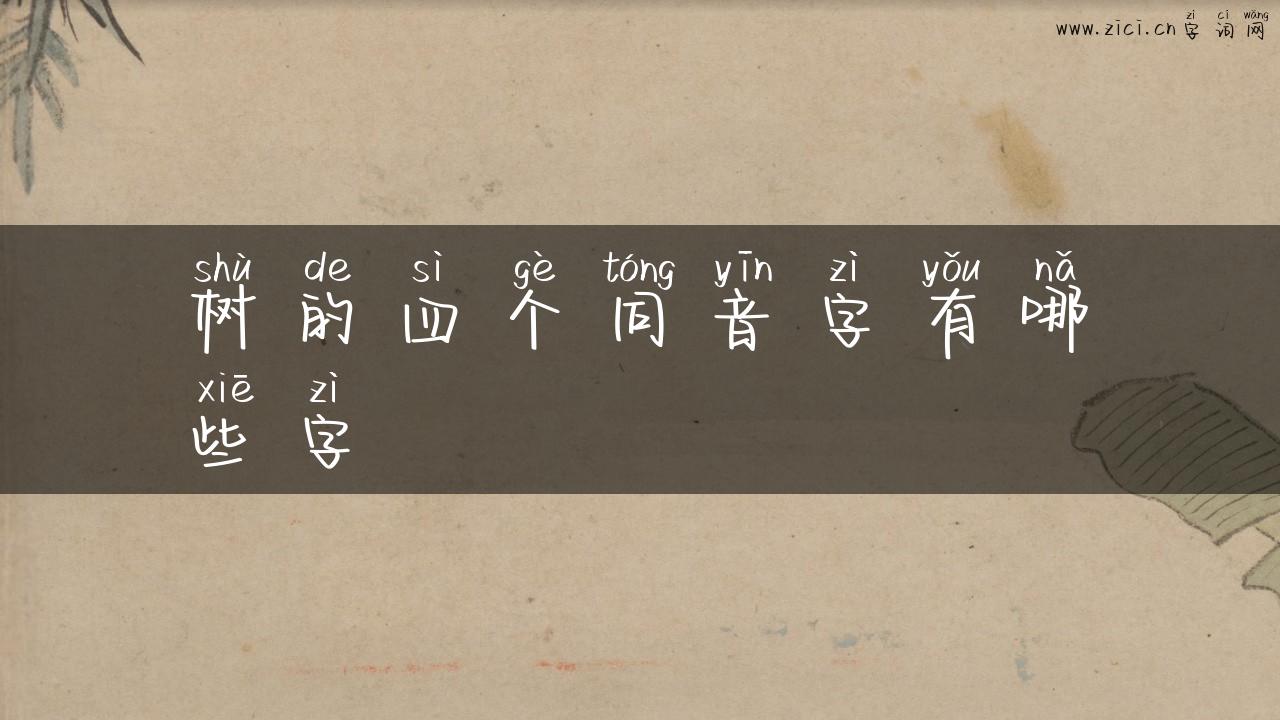 zì cí wǎng
www.zici.cn 字词网
shù de sì gè tóng yīn zì yǒu nǎ
树的四个同音字有哪
xiē zì
些字